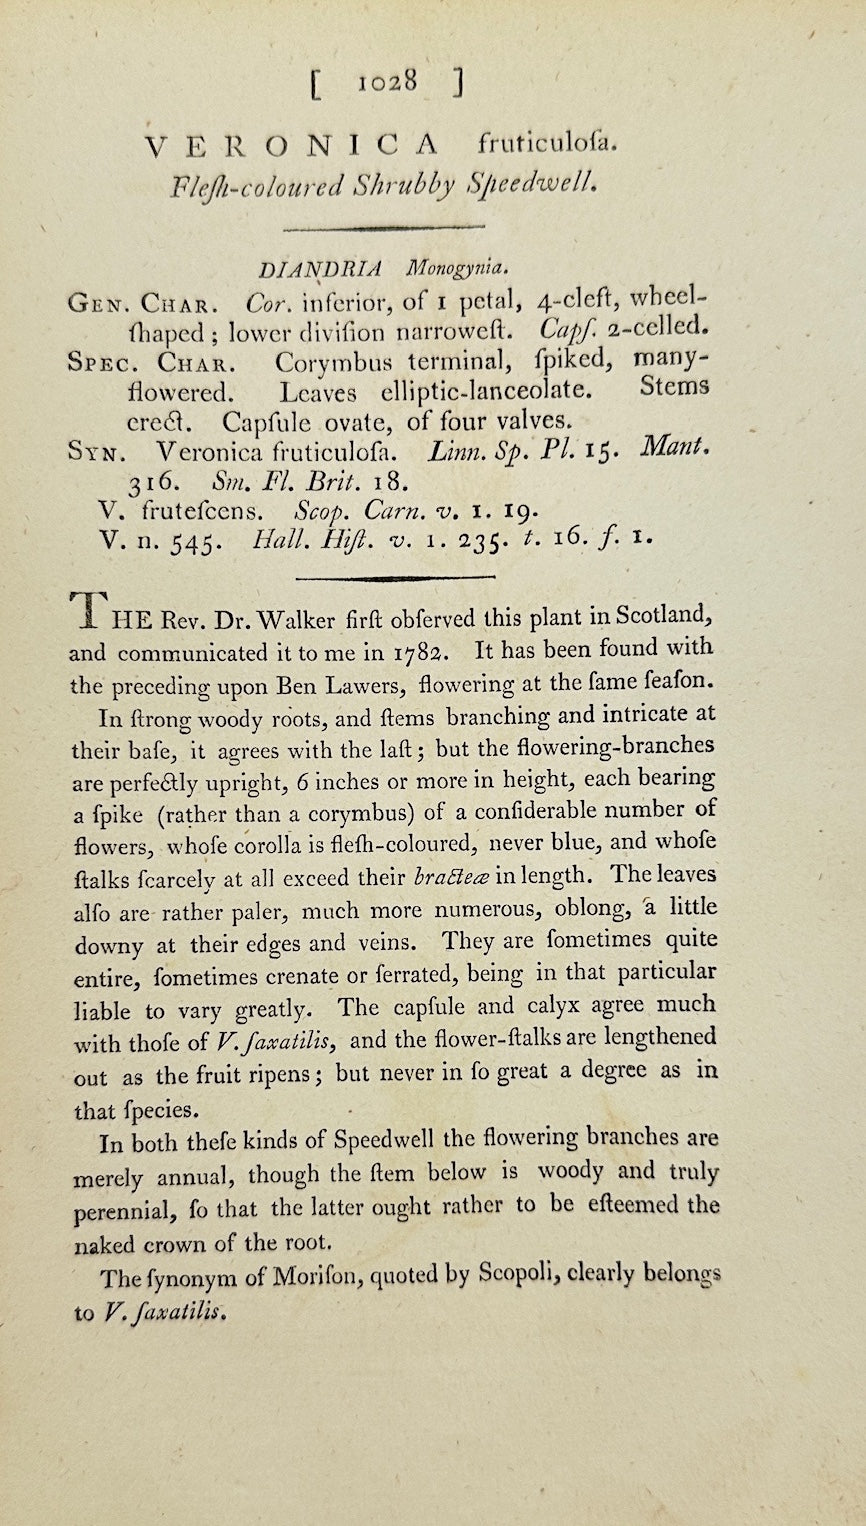 [ 1028 ]
VERONICA fruticuloſa.
Fleſh-coloured Shrubby Speedwell.
DIANDRIA Monogynia.
GEN. CHAR. Cor. inferior, of 1 petal, 4-cleft, wheel-
ſhaped; lower diviſion narroweſt. Capſ. 2-celled.
SPEC. CHAR. Corymbus terminal, ſpiked, many-
flowered. Leaves elliptic-lanceolate. Stems
erect. Capſule ovate, of four valves.
SYN. Veronica fruticuloſa. Linn. Sp. Pl. 15. Mant.
316. Sm. Fl. Brit. 18.
V. fruteſcens. Scop. Carn. v. 1. 19.
V. n. 545. Hall. Hiſt. v. 1. 235. t. 16. f. 1.
THE Rev. Dr. Walker firſt obſerved this plant in Scotland,
and communicated it to me in 1782. It has been found with
the preceding upon Ben Lawers, flowering at the ſame ſeaſon.
In ſtrong woody roots, and ſtems branching and intricate at
their baſe, it agrees with the laſt; but the flowering-branches
are perfectly upright, 6 inches or more in height, each bearing
a ſpike (rather than a corymbus) of a conſiderable number of
flowers, whoſe corolla is fleſh-coloured, never blue, and whoſe
ſtalks ſcarcely at all exceed their bracteæ in length. The leaves
alſo are rather paler, much more numerous, oblong, a little
downy at their edges and veins. They are ſometimes quite
entire, ſometimes crenate or ſerrated, being in that particular
liable to vary greatly. The capſule and calyx agree much
with thoſe of V. ſaxatilis, and the flower-ſtalks are lengthened
out as the fruit ripens; but never in ſo great a degree as in
that ſpecies.
In both theſe kinds of Speedwell the flowering branches are
merely annual, though the ſtem below is woody and truly
perennial, ſo that the latter ought rather to be eſteemed the
naked crown of the root.
The ſynonym of Moriſon, quoted by Scopoli, clearly belongs
to V. ſaxatilis.